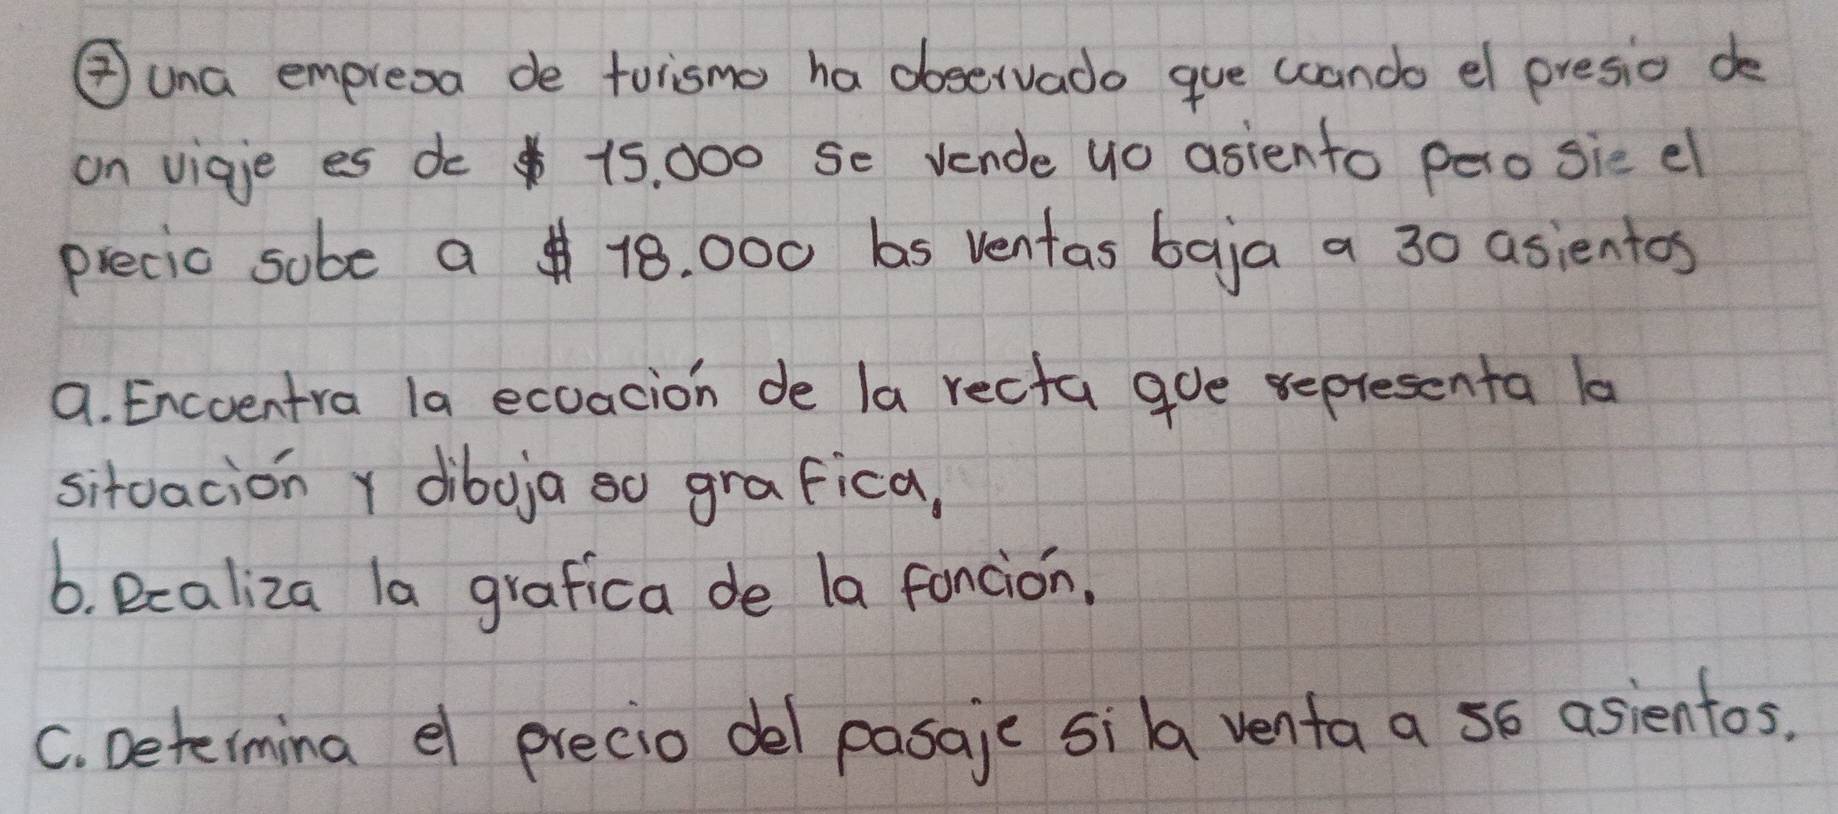 ⑦ una empresa de turismo ha observado que cuando el presio de
un viaje es de $ 15.000 se vende 40 asiento pero sie el
precio sube a $ 18.000 las ventas baja a 30 asientos
a. Encuentra la ecuación de la recta que representa la
situación y dibuja su grafica,
b. Realiza la grafica de la función.
c. Determina el precio del pasaje si la venta a 56 asientos.